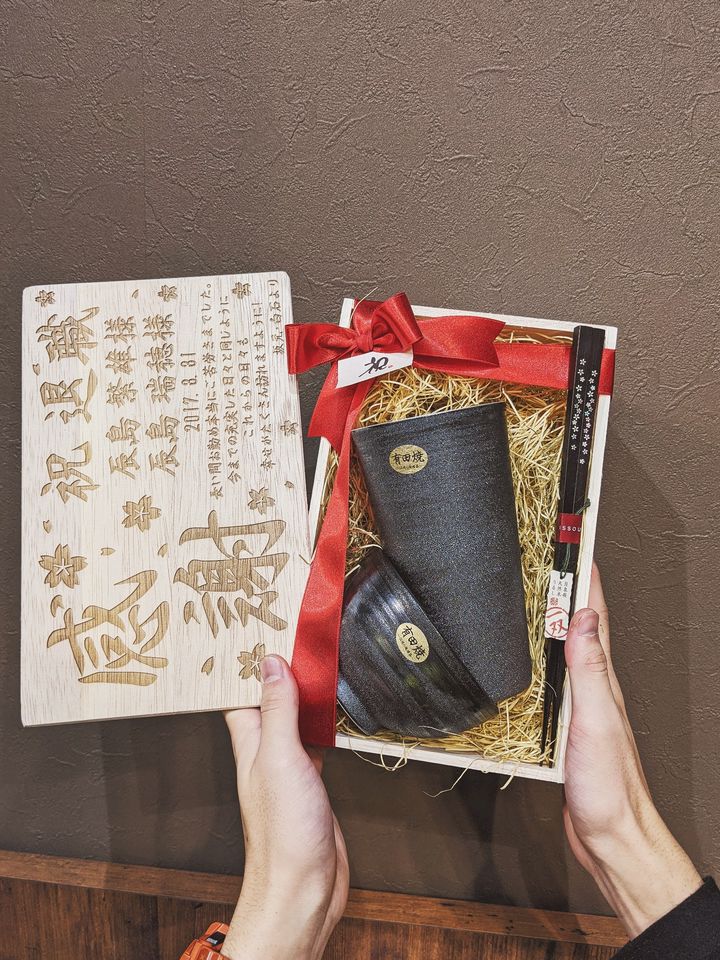 祝退職
辰島 繁雄様
辰島 瑞穂様
2017.8.31
長い間お勤め本当にご苦労さまでした。
今までの充実した日々と同じように
これからの日々も
幸せがたくさん訪れますように!
坂元・白石より
感謝
祝
有田焼
有田焼
ISSOU
天然木